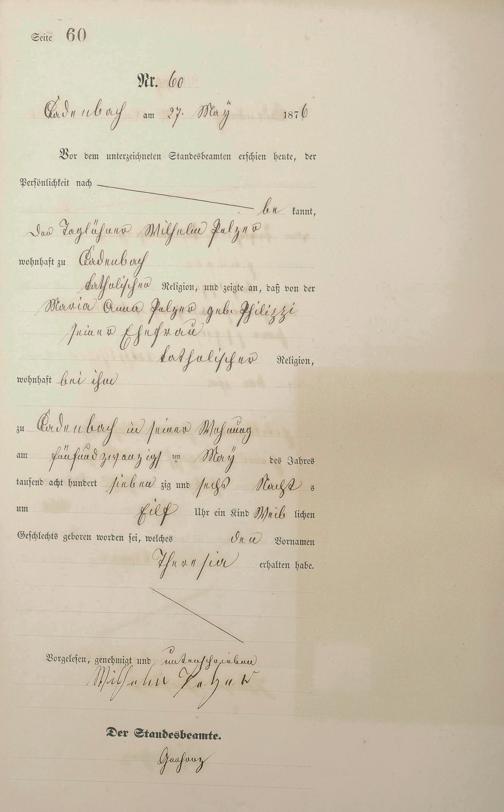 Seite 60
Nr. 60
Cadenbach am 27. May 1876
Vor dem unterzeichneten Standesbeamten erschien heute, der
Persönlichkeit nach
be kannt,
der Taglöhner Wilhelm Pelzer
wohnhaft zu Cadenbach
katholischer Religion, und zeigte an, daß von der
Maria Anna Pelzer geb. Philippi
seiner Ehefrau
katholischer Religion,
wohnhaft bei ihm
zu Cadenbach in seiner Wohnung
am fünfundzwanzigsten May des Jahres
tausend acht hundert sieben zig und sechs Nacht s
um Eilf Uhr ein Kind Weib lichen
Geschlechts geboren worden sei, welches den Vornamen
Theresia erhalten habe.
Vorgelesen, genehmigt und unterschrieben
Wilhelm Pelzer
Der Standesbeamte.